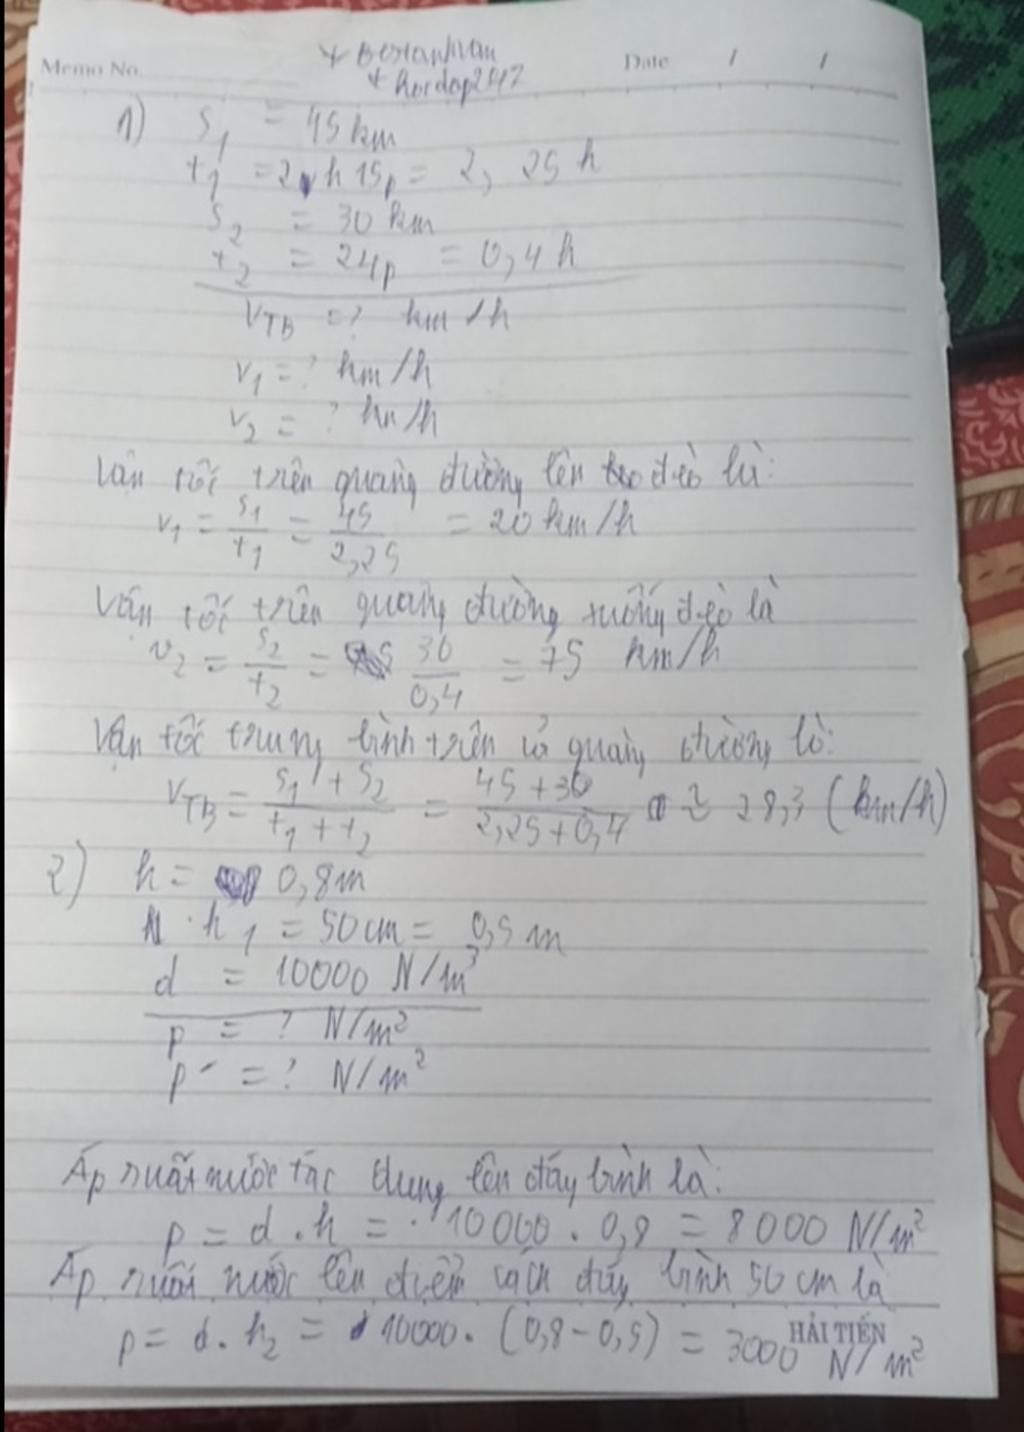 Memo No.
Date / /
+ hoidap247
1) S₁ = 45 km
t₁ = 2h 15p = 2,25 h
S₂ = 30 km
t₂ = 24p = 0,4 h
V_TB = ? km/h
v₁ = ? km/h
v₂ = ? km/h
Vận tốc trên quãng đường lên đèo là:
v₁ = S₁/t₁ = 45/2,25 = 20 km/h
Vận tốc trên quãng đường xuống đèo là
v₂ = S₂/t₂ = 30/0,4 = 75 km/h
Vận tốc trung bình trên cả quãng đường là:
V_TB = (S₁ + S₂)/(t₁ + t₂) = (45 + 30)/(2,25 + 0,4) ≈ 28,3 (km/h)
2) h = 0,8m
h₁ = 50 cm = 0,5 m
d = 10000 N/m³
p = ? N/m²
p' = ? N/m²
Áp suất nước tác dụng lên đáy bình là:
p = d . h = 10000 . 0,8 = 8000 N/m²
Áp suất nước lên điểm cách đáy bình 50 cm là
p = d . h₂ = 10000 . (0,8 - 0,5) = 3000 N/m²
HẢI TIẾN